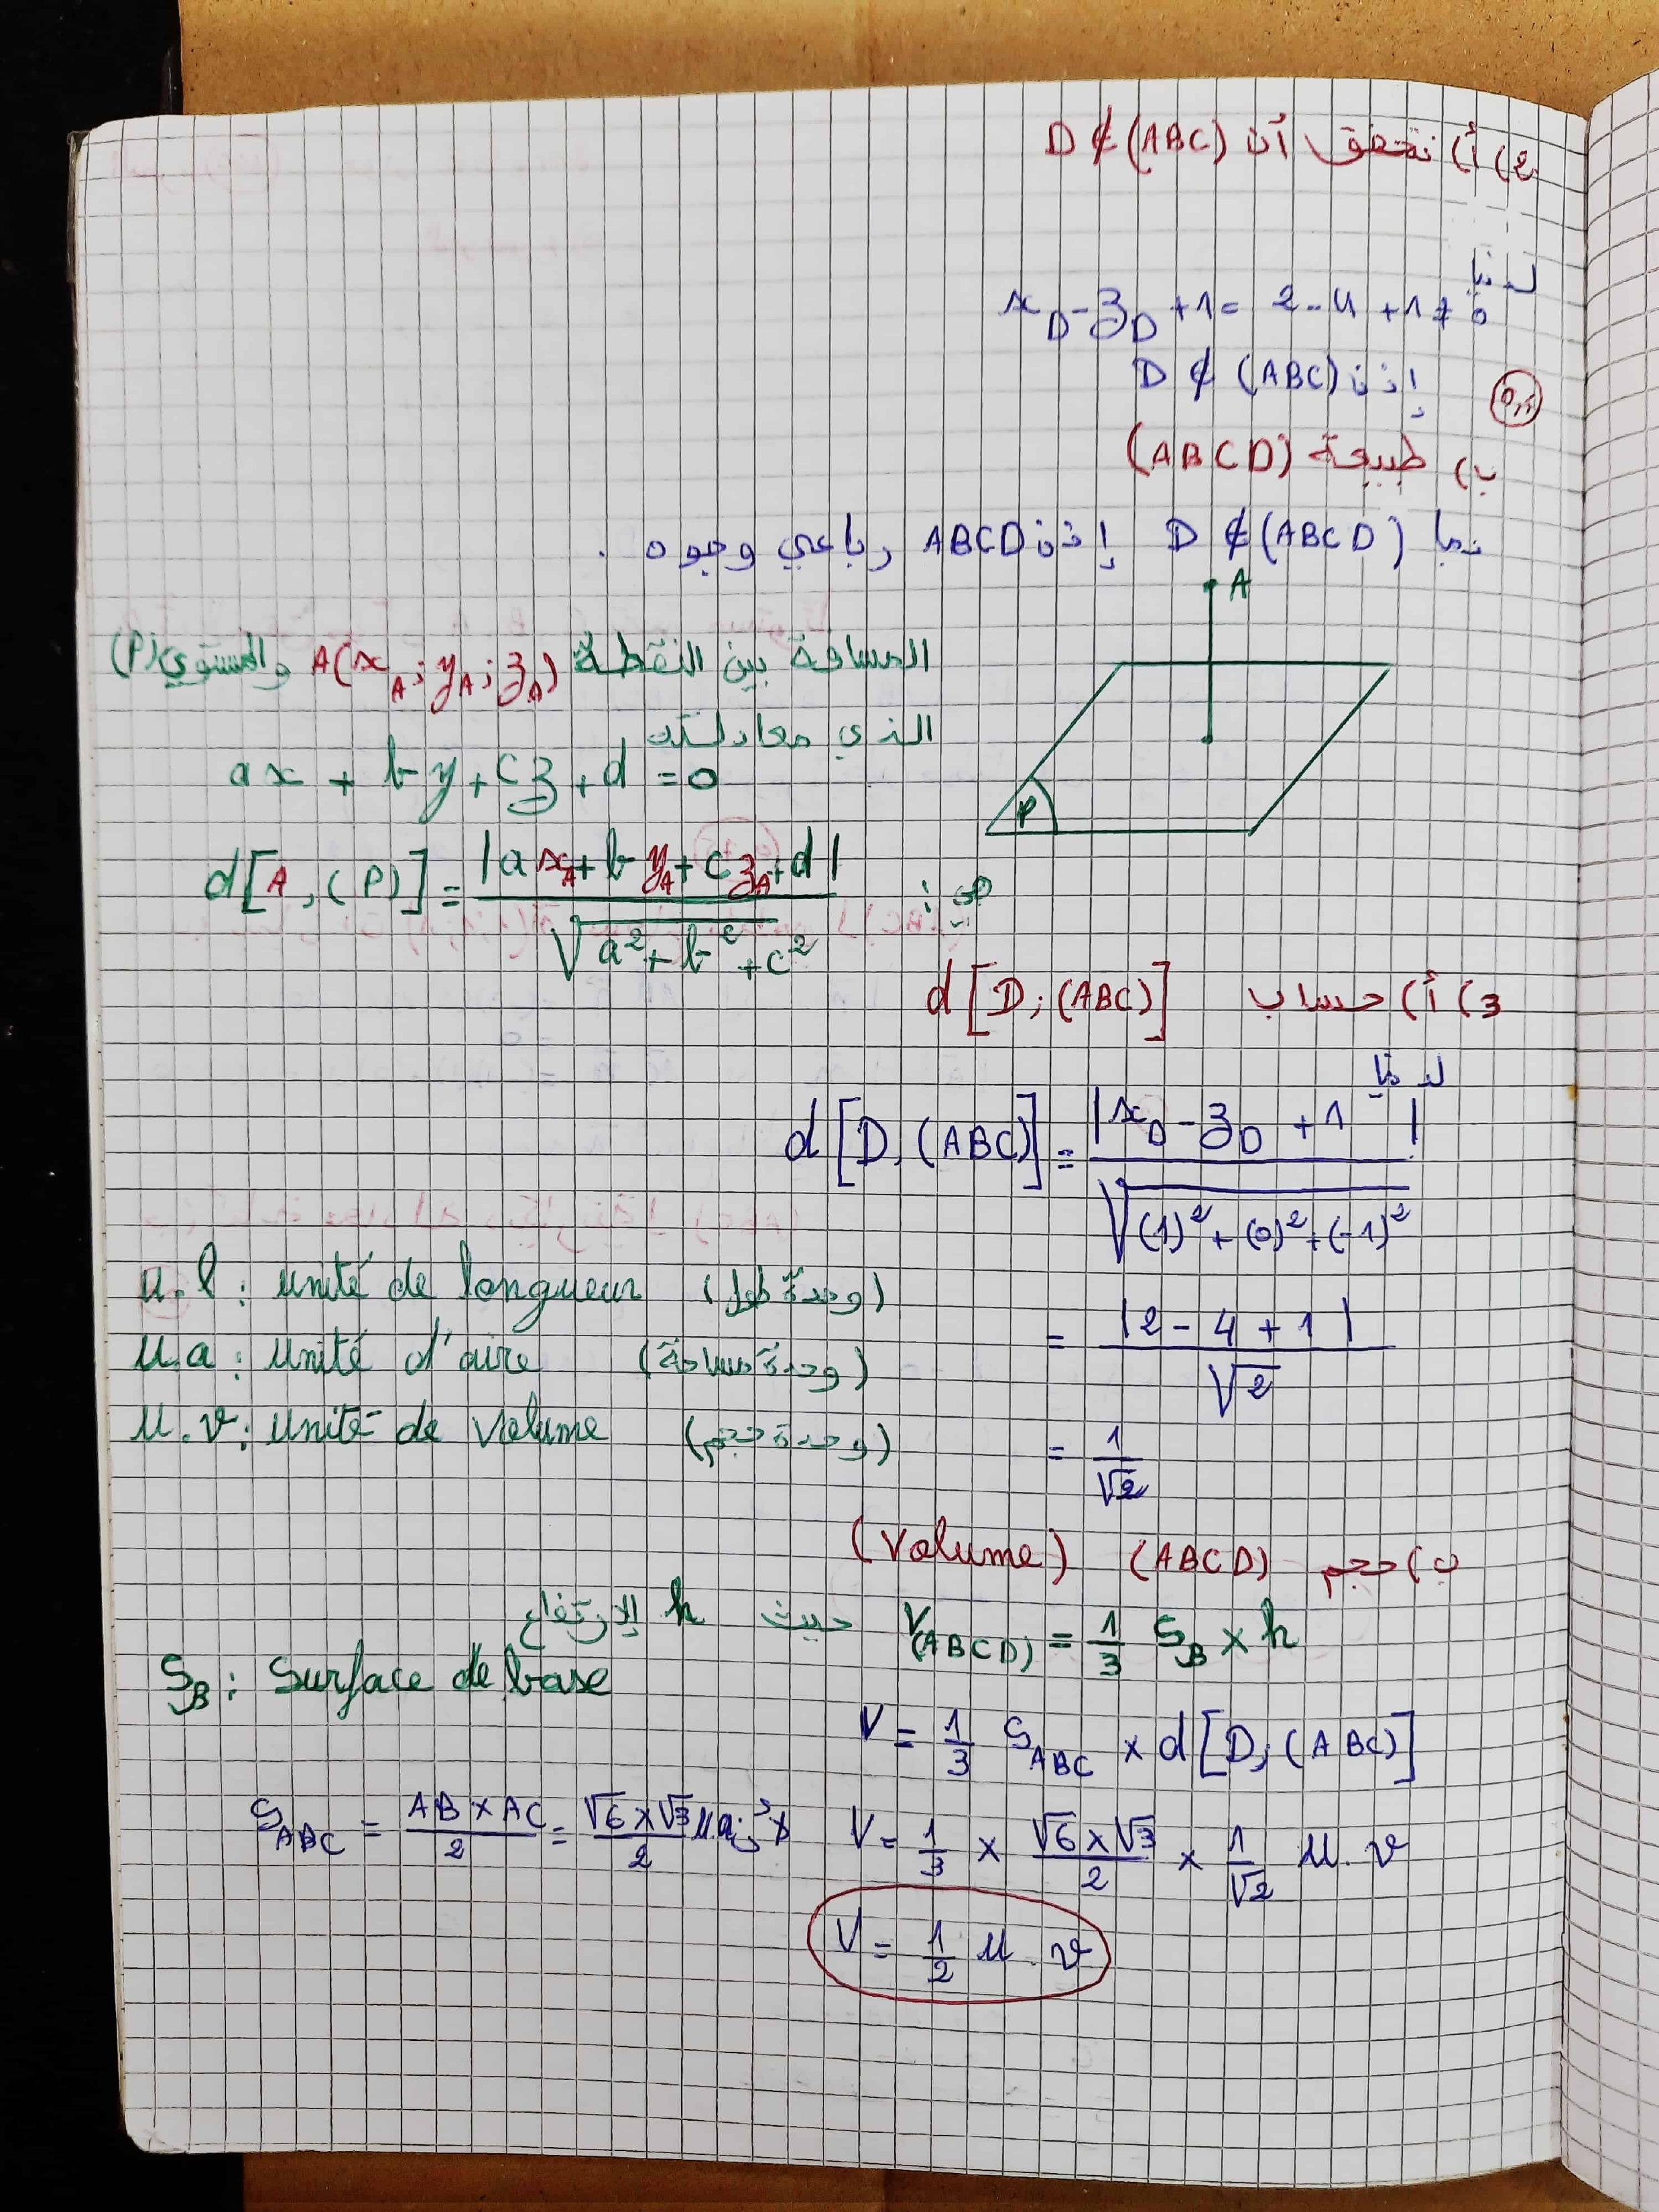 2) أ) نتحقق أن D ∉ (ABC)
لدينا
x_D - z_D + 1 = 2 - 4 + 1 ≠ 0
إذن D ∉ (ABC)
0,5
ب) طبيعة (ABCD)
بما D ∉ (ABCD) إذن ABCD رباعي وجوه .
A
المسافة بين النقطة A(x_A ; y_A ; z_A) والمستوى (P)
الذي معادلته
ax + by + cz + d = 0
P
هي :
d[A, (P)] = |ax_A + by_A + cz_A + d| / √(a² + b² + c²)
3) أ) حساب d[D; (ABC)]
لدينا
d[D, (ABC)] = |x_D - z_D + 1| / √((1)² + (0)² + (-1)²)
= |2 - 4 + 1| / √2
= 1/√2
u.l : unité de longueur (وحدة طول)
u.a : unité d'aire (وحدة مساحة)
u.v : unité de volume (وحدة حجم)
ب) حجم (ABCD) (volume)
V_(ABCD) = 1/3 S_B × h حيث h الإرتفاع
S_B : Surface de base
V = 1/3 S_ABC × d[D; (ABC)]
S_ABC = (AB × AC)/2 = (√6 × √3)/2 u.a
V = 1/3 × (√6 × √3)/2 × 1/√2 u.v
V = 1/2 u.v